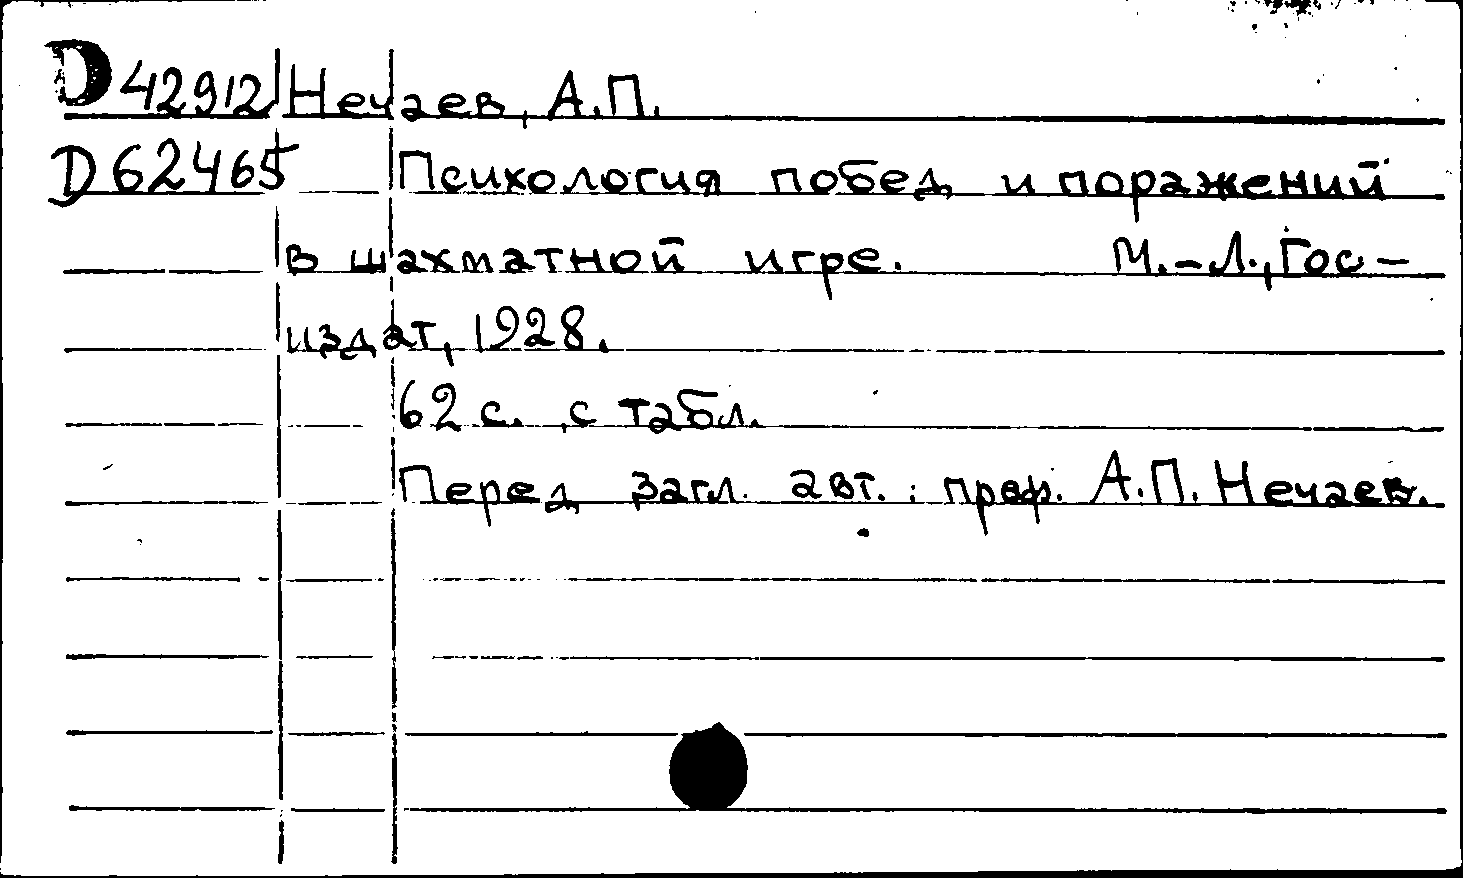 D 42912 Нечаев, А.П.
D 62465 Психология побед и поражений
в шахматной игре. М.-Л., Гос-
издат, 1928.
62 с. , с табл.
Перед загл. авт. : проф. А.П. Нечаев.